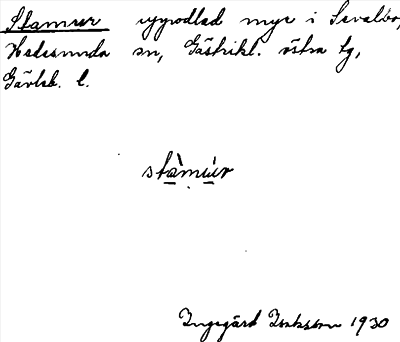 Stamur uppodlad myr i Sevalbo,
Hedesunda sn, Gästrikl. östra tg,
Gävleb. l.
stàmúr
Ingegärd Isaksson 1930